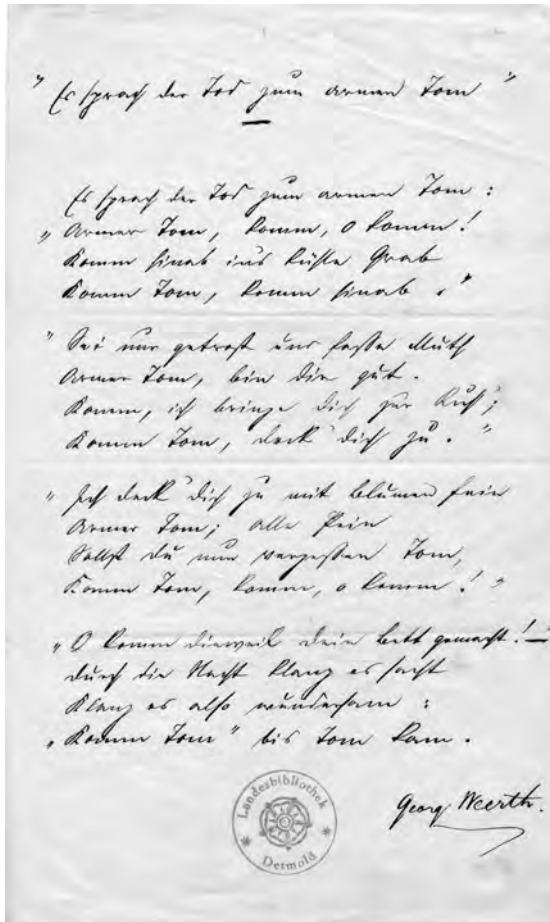 " Es sprach der Tod zum armen Tom "
Es sprach der Tod zum armen Tom :
„ Armer Tom, komm, o komm !
Komm hinab ins kühle Grab
Komm Tom, komm hinab . "
" Sei nur getrost und fasse Muth
Armer Tom, bin dir gut .
Komm, ich bringe dich zur Ruh' ;
Komm Tom, deck' dich zu . "
" Ich deck' dich zu mit Blumen fein
Armer Tom ; alle Pein
Sollst du nun vergessen Tom,
Komm Tom, komm, o komm ! "
„ O komm dieweil dein Bett gemacht ! —
Durch die Nacht klang es sacht
Klang es also wundersam :
„ Komm Tom " bis Tom kam .
Georg Weerth.
Landesbibliothek
* Detmold *